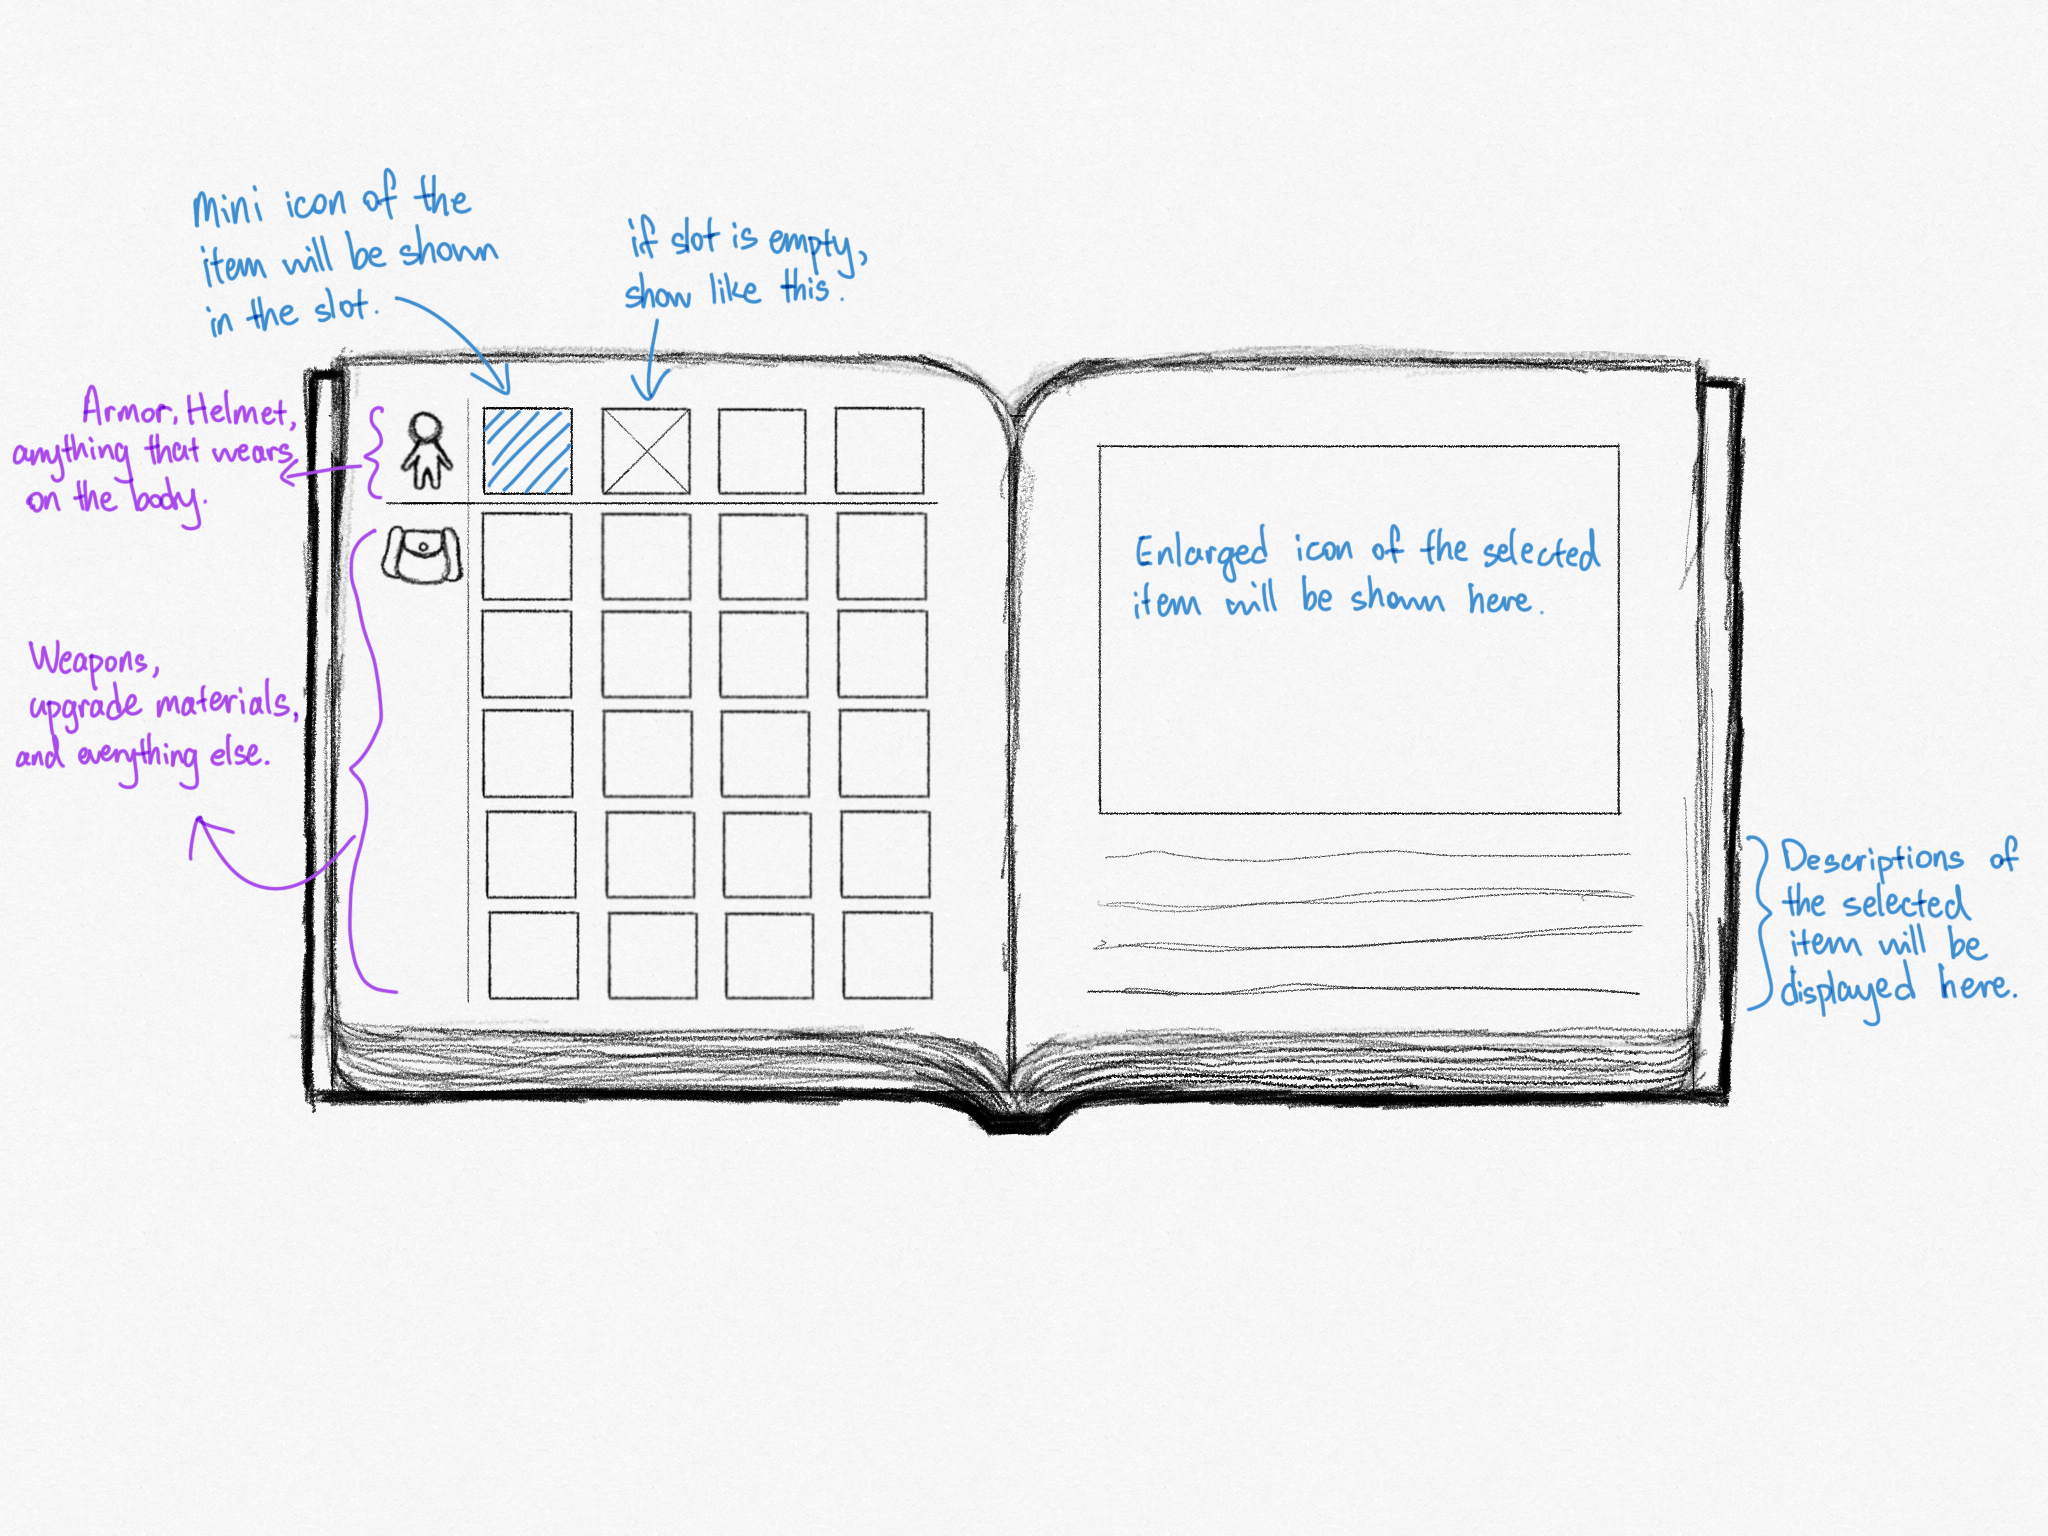 Mini icon of the
item will be shown
in the slot.
if slot is empty,
show like this.
Armor, Helmet,
anything that wears
on the body.
Weapons,
upgrade materials,
and everything else.
Enlarged icon of the selected
item will be shown here.
Descriptions of
the selected
item will be
displayed here.